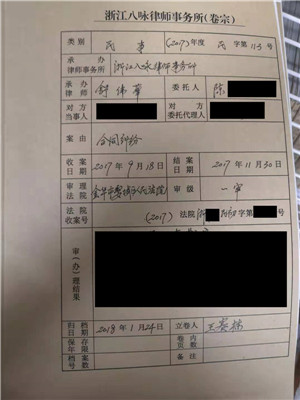 浙江八咏律师事务所(卷宗)
类别 民事 (2017)年度 民字第113号
承办律师事务所 浙江八咏律师事务所
承办律师 委托人 陈
对方当事人 对方委托代理人
案由 合同纠纷
收案日期 2017年9月18日 结案日期 2017年11月30日
审理法院 金华市婺城区人民法院 审级 一审
法院收案号 (2017) 法院浙 字第 号
审(办)理结果
归档日期 2018年1月24日 立卷人
保存年限 卷内页数
档案号 备注